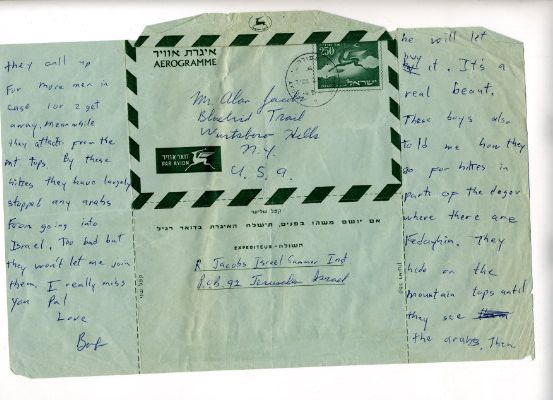 they call up
for more men in
case 1 or 2 get
away. Meanwhile
they attack from the
mt. tops. By these
hikes they have largely
stopped any arabs
from going into
Israel. Too bad but
they won't let me join
them. I really miss
you Pal
Love
איגרת אוויר
AEROGRAMME
250
ישראל
Mr. Alan Jacobs
Bluebird Trail
Wurtsboro Hills
N.Y.
U.S.A.
דואר אוויר
PAR AVION
קפל שלישי
אם יושם משהו בפנים, תישלח האיגרת בדואר רגיל
השולח - EXPEDITEUR
R Jacobs Israel Summer Inst
P.O.B. 92 Jerusalem Israel
קפל שני
he will let
buy it. It's a
real beaut.
These boys also
told me how they
go for hikes in
parts of the negev
where there are
Fedayhin. They
hide on the
mountain tops until
they see
the arabs. Then